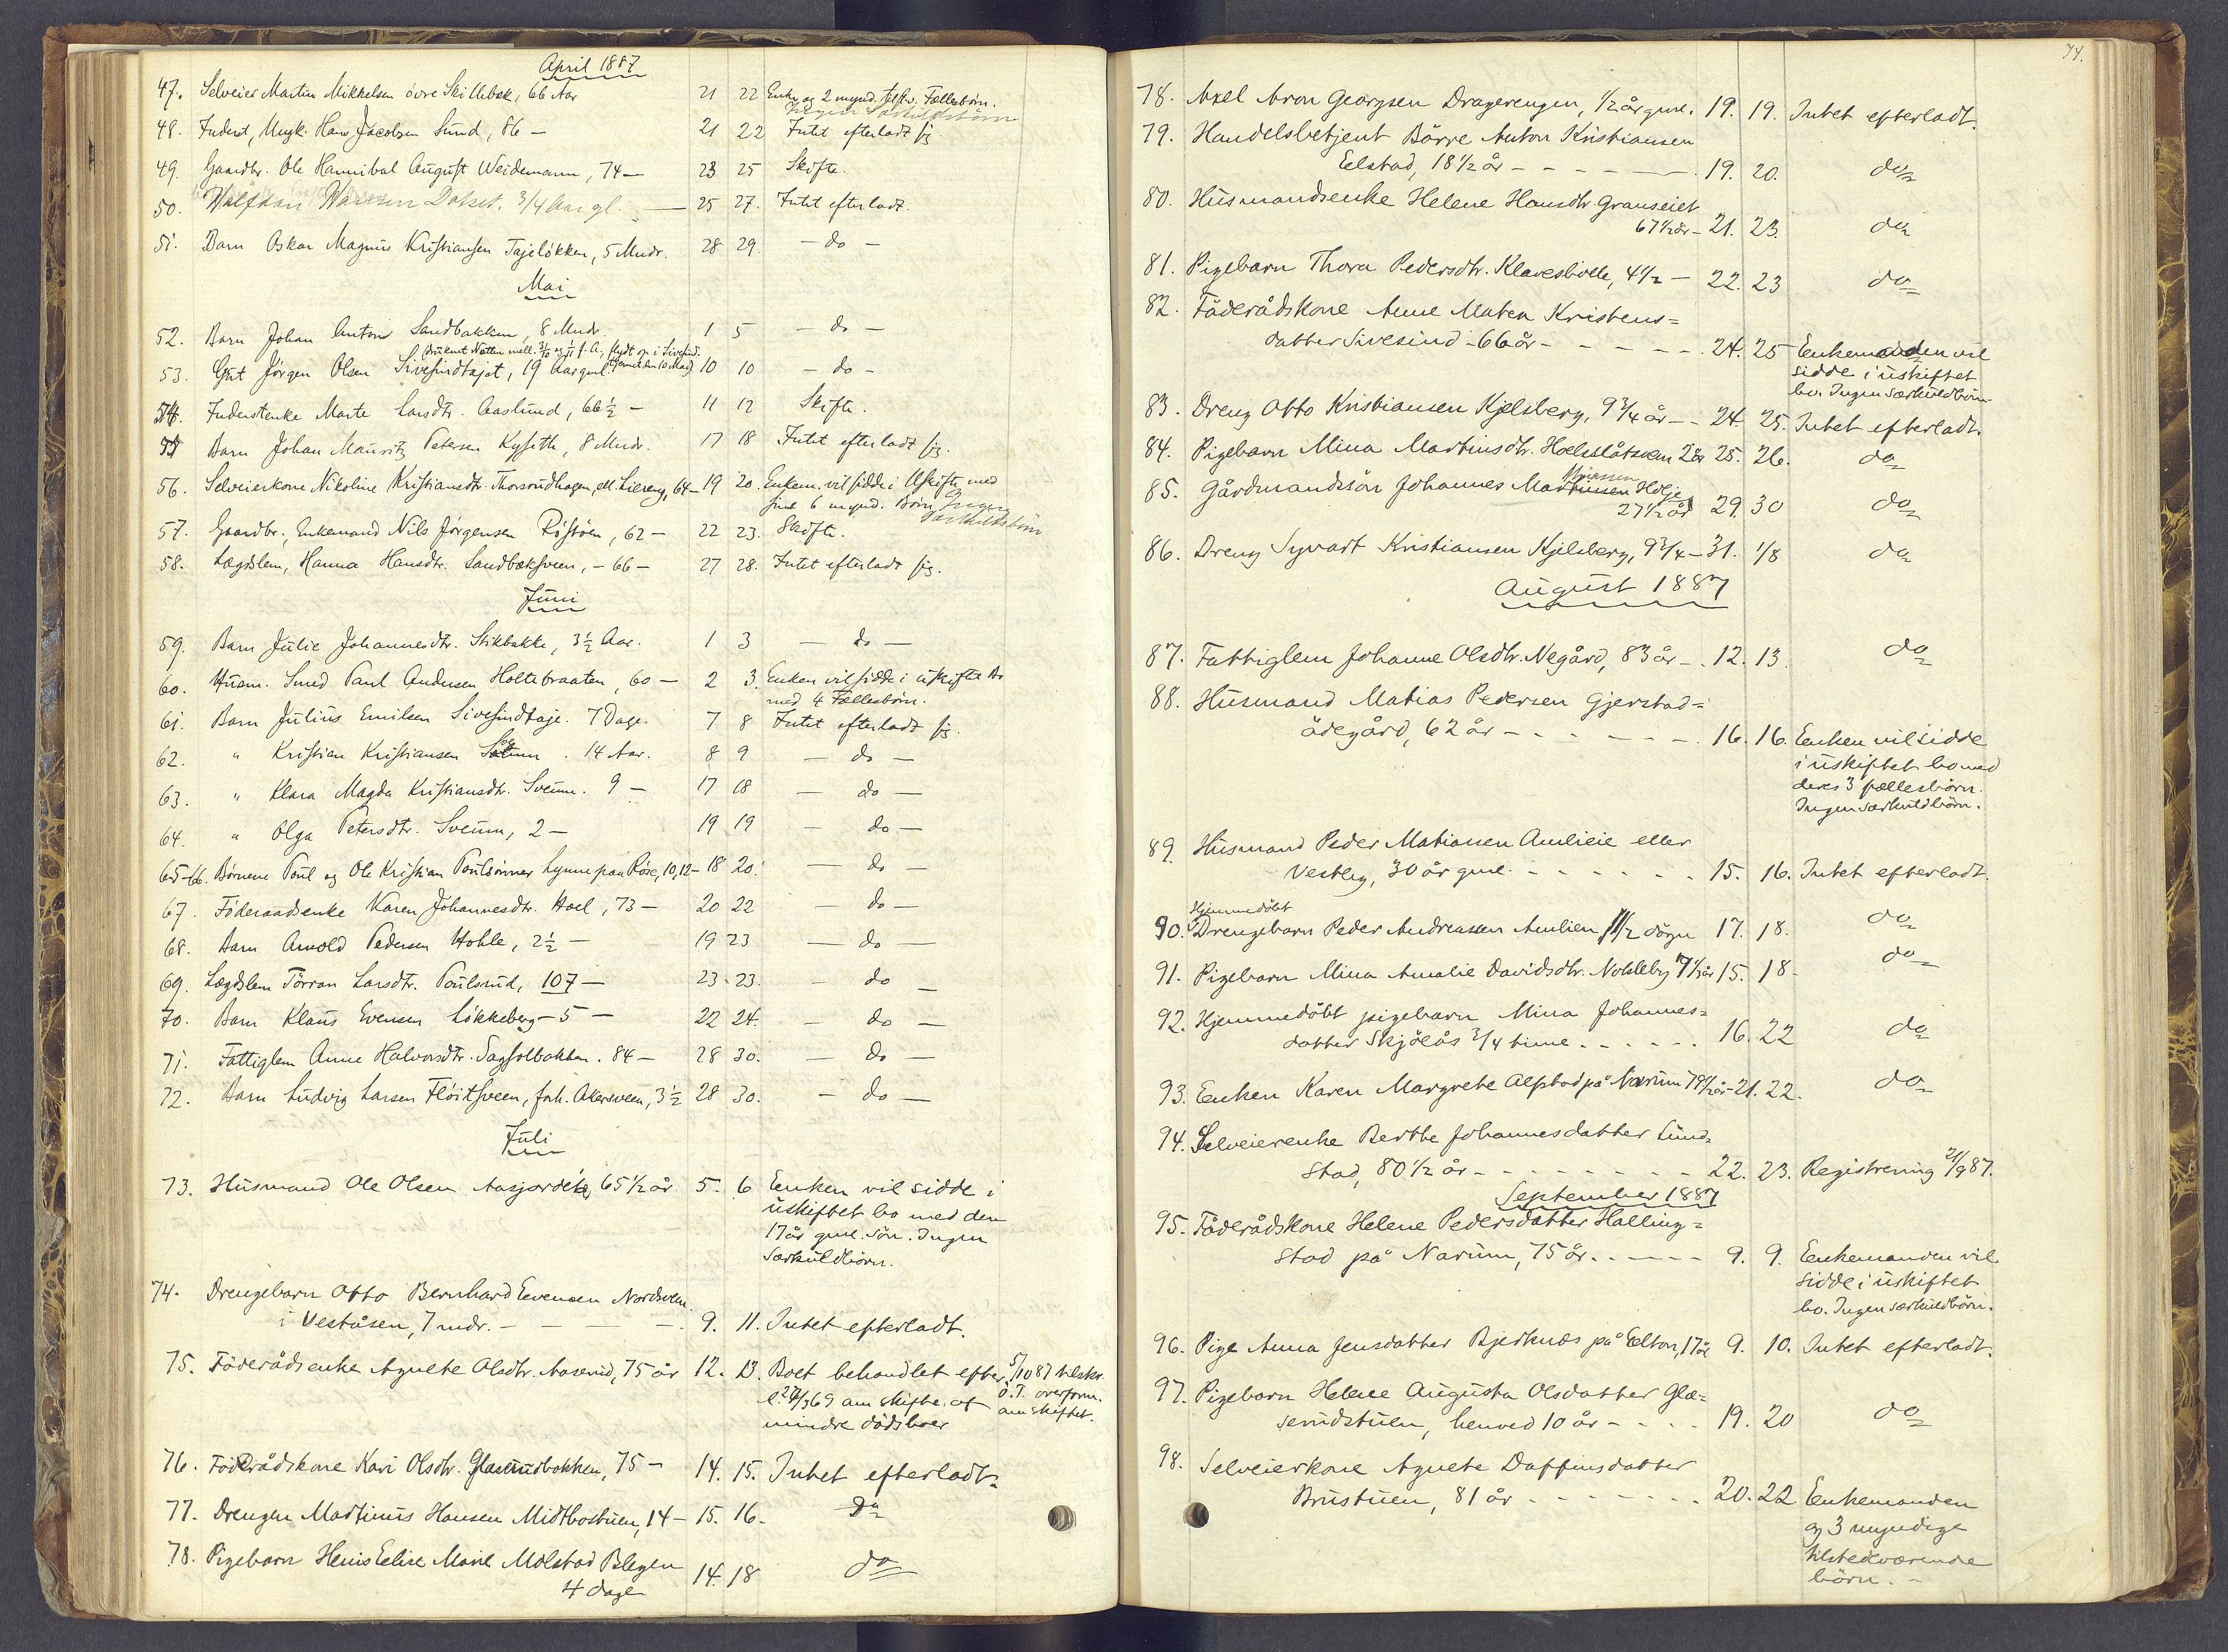 April 1887
47. Selveier Martin Mikkelsen övre Skillebæk, 66 Aar 21 22 Enke og 2 mynd. Fællesbørn.
Ingen Særkuldsbørn
48. Inderst, Ungk. Hans Jacobsen Lund, 86 — 21 22 Intet efterladt sig.
49. Gaardbr. Ole Hannibal August Weidemann, 74 — 23 25 Skifte.
50. Halfdan Dalset. 3/4 Aar gl. — 25 27. Intet efterladt.
51. Barn Oskar Magnus Kristiansen Tajeløkken, 5 Mndr. 28 29. — do —
Mai
52. Barn Johan Anton Sandbakken, 8 Mndr. 1 5 — do —
53. Gut Jørgen Olsen Sivesindtajet, 19 Aar gml. 10 10 — do —
54. Inderstenke Marte Larsdtr. Aaslund, 66 ½ — 11 12 Skifte.
55 Barn Johan Mauritz Petersen Kyseth, 8 Mndr. 17 18 Intet efterladt sig.
56. Selveierkone Nikoline Kristiansdtr. Thorsrudhagen, ell. Liereng, 64 — 19 20. Enkem. vil sidde i Uskifte med
sine 6 mynd. Børn Ingen
Særkuldsbörn
57. Gaardbr., Enkemand Nils Jørgensen Röstöen, 62 — 22 23. Skifte.
58. Lægdslem, Hanna Hansdtr. Sandbæksveen, — 66 — 27 28. Intet efterladt sig.
Juni
59. Barn Julie Johannesdtr. Stikbakke, 3 ½ Aar. 1 3 — do —
60. Husm. Smed Paul Andersen Holtebraaten, 60 — 2 3. Enken vil sidde i uskifte Bo
med 4 Fællesbørn.
61. Barn Julius Emilsen Sivesindtaje. 7 Dage. 7 8 Intet efterladt sig.
62. " Kristian Kristiansen . 14 Aar. 8 9 — do —
63. " Klara Magda Kristiansdtr. Sveum. 9 — 17 18 — do —
64. " Olga Petersdtr. Sveum, 2 — 19 19 — do —
65-66. Børnene Poul og Ole Kristian Poulsønner Lynne paa Röse, 10, 12 — 18 20. — do —
67. Föderaadsenke Karen Johannesdtr. Hoel, 73 — 20 22 — do —
68. Barn Arnold Pedersen Hohle, 2 ½ — 19 23 — do —
69. Lægdslem Törran Larsdtr. Poulsrud, 107 — 23. 23. — do —
70. Barn Klaus Evensen Løkkeberg — 5 — 22 24. — do —
71. Fattiglem Anne Halvorsdtr. Sagsolbakken. 84 — 28 30. — do —
72. Barn Ludvig Larsen Flöitsveen, forh. Akersveen, 3 ½ 28 30. — do —
Juli
73. Husmand Ole Olsen Aasjordet, 65 ½ år 5. 6 Enken vil sidde i
uskiftet bo med den
17 år gml. sön. Ingen
særkuldbörn.
74. Drengebarn Otto Bernhard Evensen Nordsveen
i Veståsen, 7 mdr. — — — — 9. 11. Intet efterladt.
75. Föderådsenke Agnete Olsdtr. Aaserud, 75 år 12. 13. Boet behandlet efter 5/10 87 tilskr.
l. 69 om skifte af ö.T. overform.
mindre dödsboer om skiftet.
76. Föderådskone Kari Olsdtr. Glæserudbakken, 75 — 14. 15. Intet efterladt.
77. Drengen Martinus Hansen Midtbostuen, 14 — 15. 16. Do
78. Pigebarn Elise Marie Molstad Blegen
4 dage 14. 18 do
74.
78. Axel Aron Georgsen Dragerengen, ½ år gml. 19. 19. Intet efterladt.
79. Handelsbetjent Börre Anton Kristiansen
Eelstad, 18 ½ år — — — — — 19. 20. do
80. Husmandsenke Helene Hansdtr. Granseiet
67 ½ år — 21. 23. do
81. Pigebarn Thora Pedersdtr. Klavesbölle, 4 ½ — 22. 23 do
82. Föderådskone Anne Matea Kristens=
datter Sivesind — 66 år — — — — — 24. 25 Enkemanden vil
sidde i uskiftet
bo. Ingen særkuldbörn
83. Dreng Otto Kristiansen Kjelsberg, 9 ¾ år — — 24. 25. Intet efterladt.
84. Pigebarn Mina Martinsdtr. Hoelsslåtsveen 2 år 25. 26. do
85. Gårdmandssön Johannes Martinsen Holje
27 ½ år 29. 30 do
86. Dreng Syvart Kristiansen Kjelsberg, 9 ¾ — 31. 1/8 do
August 1887
87. Fattiglem Johanne Olsdtr. Negård, 83 år — . 12. 13. do
88. Husmand Matias Pedersen Gjerstad=
ödegård, 62 år — — — — — 16. 16. Enken vil sidde
i uskiftet bo med
deres 3 fællesbörn.
Ingen særkuldbörn.
89. Husmand Peder Matiassen Amlieie eller
Vestby, 30 år gml. — — — — — 15. 16. Intet efterladt.
Hjemmedöbt
90. Drengebarn Peder Andreassen Amlien 1 1/2 dögn 17. 18. do
91. Pigebarn Mina Amalie Davidsdtr. Nohleby 7 ½ år 15. 18 — do
92. Hjemmedöbt pigebarn Mina Johannes=
datter Skjölås ¾ time — — — — 16. 22 do
93. Enken Karen Margrete Alfstad på Narum 79 ½ år — 21. 22. do
94. Selveierenke Berthe Johannesdatter Lund=
stad, 80 ½ år — — — — — — 22. 23. Registrering 21/9 87.
September 1887
95. Föderådskone Helene Pedersdatter Halling=
stad på Narum, 75 år. — — — — 9. 9. Enkemanden vil
sidde i uskiftet
bo. Ingen særkuldbörn.
96. Pige Anna Jensdatter Bjerknes på Elton, 17 år 9. 10. Intet efterladt.
97. Pigebarn Helene Augusta Olsdatter Glæ=
serudstuen, henved 10 år — — — — 19. 20 do
98. Selveierkone Agnete Daffinsdatter
Brustuen, 81 år — — — — — — 20. 22 Enkemanden
og 3 myndige
tilstedeværende
börn. —